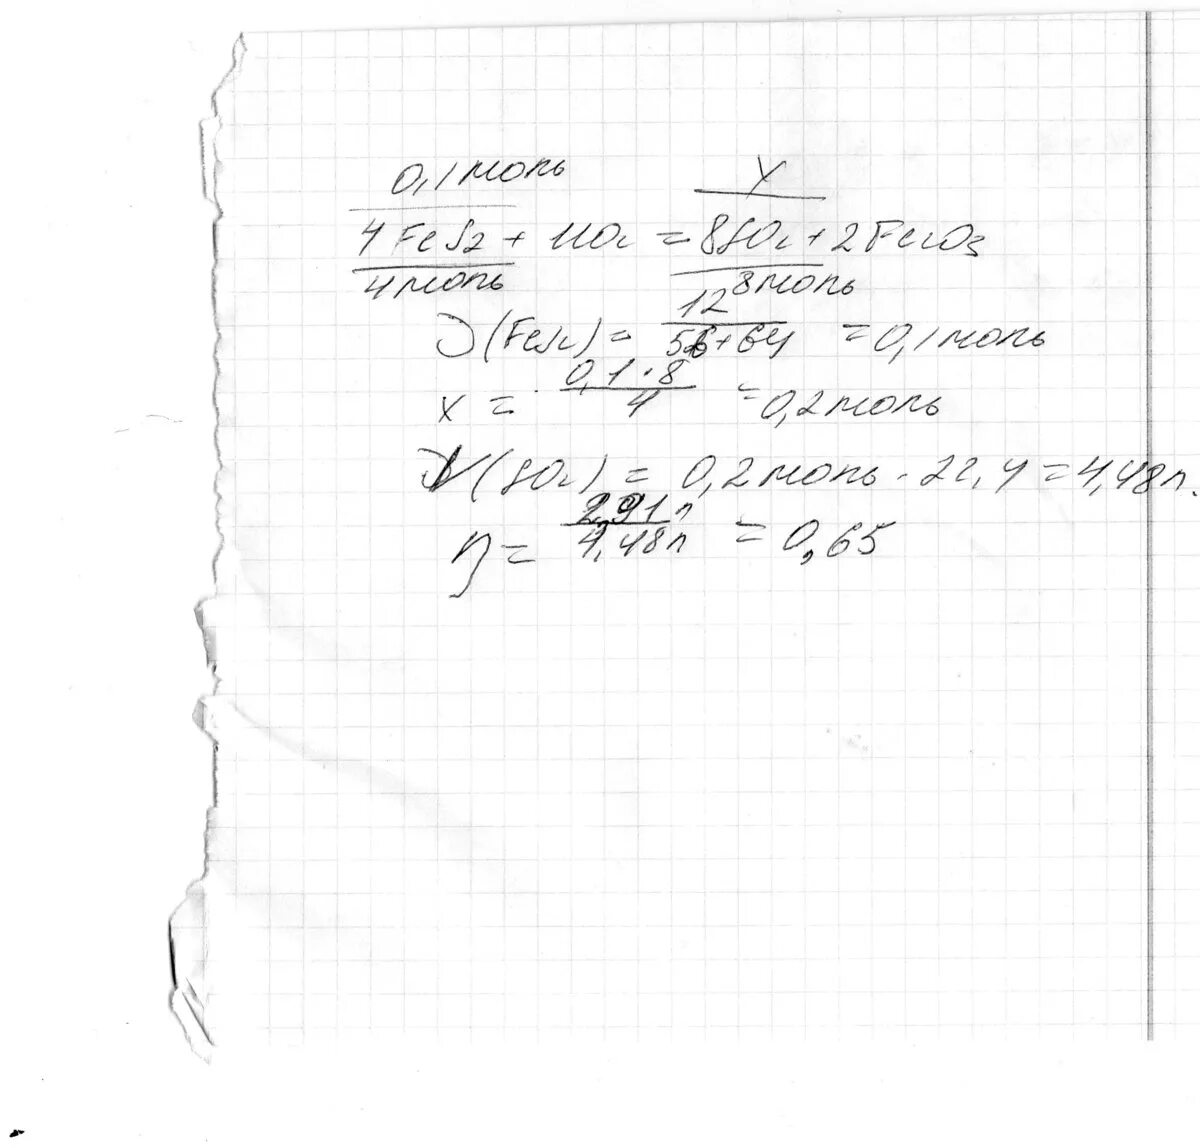 0,1 моль Y
4FeS2 + 11O2 = 8SO2 + 2Fe2O3
4 моль 8 моль
ν(FeS2) = 12 / 56+64 = 0,1 моль
x = 0,1·8 / 4 = 0,2 моль
V(SO2) = 0,2 моль · 22,4 = 4,48 л.
η = 2,91 л / 4,48 л = 0,65